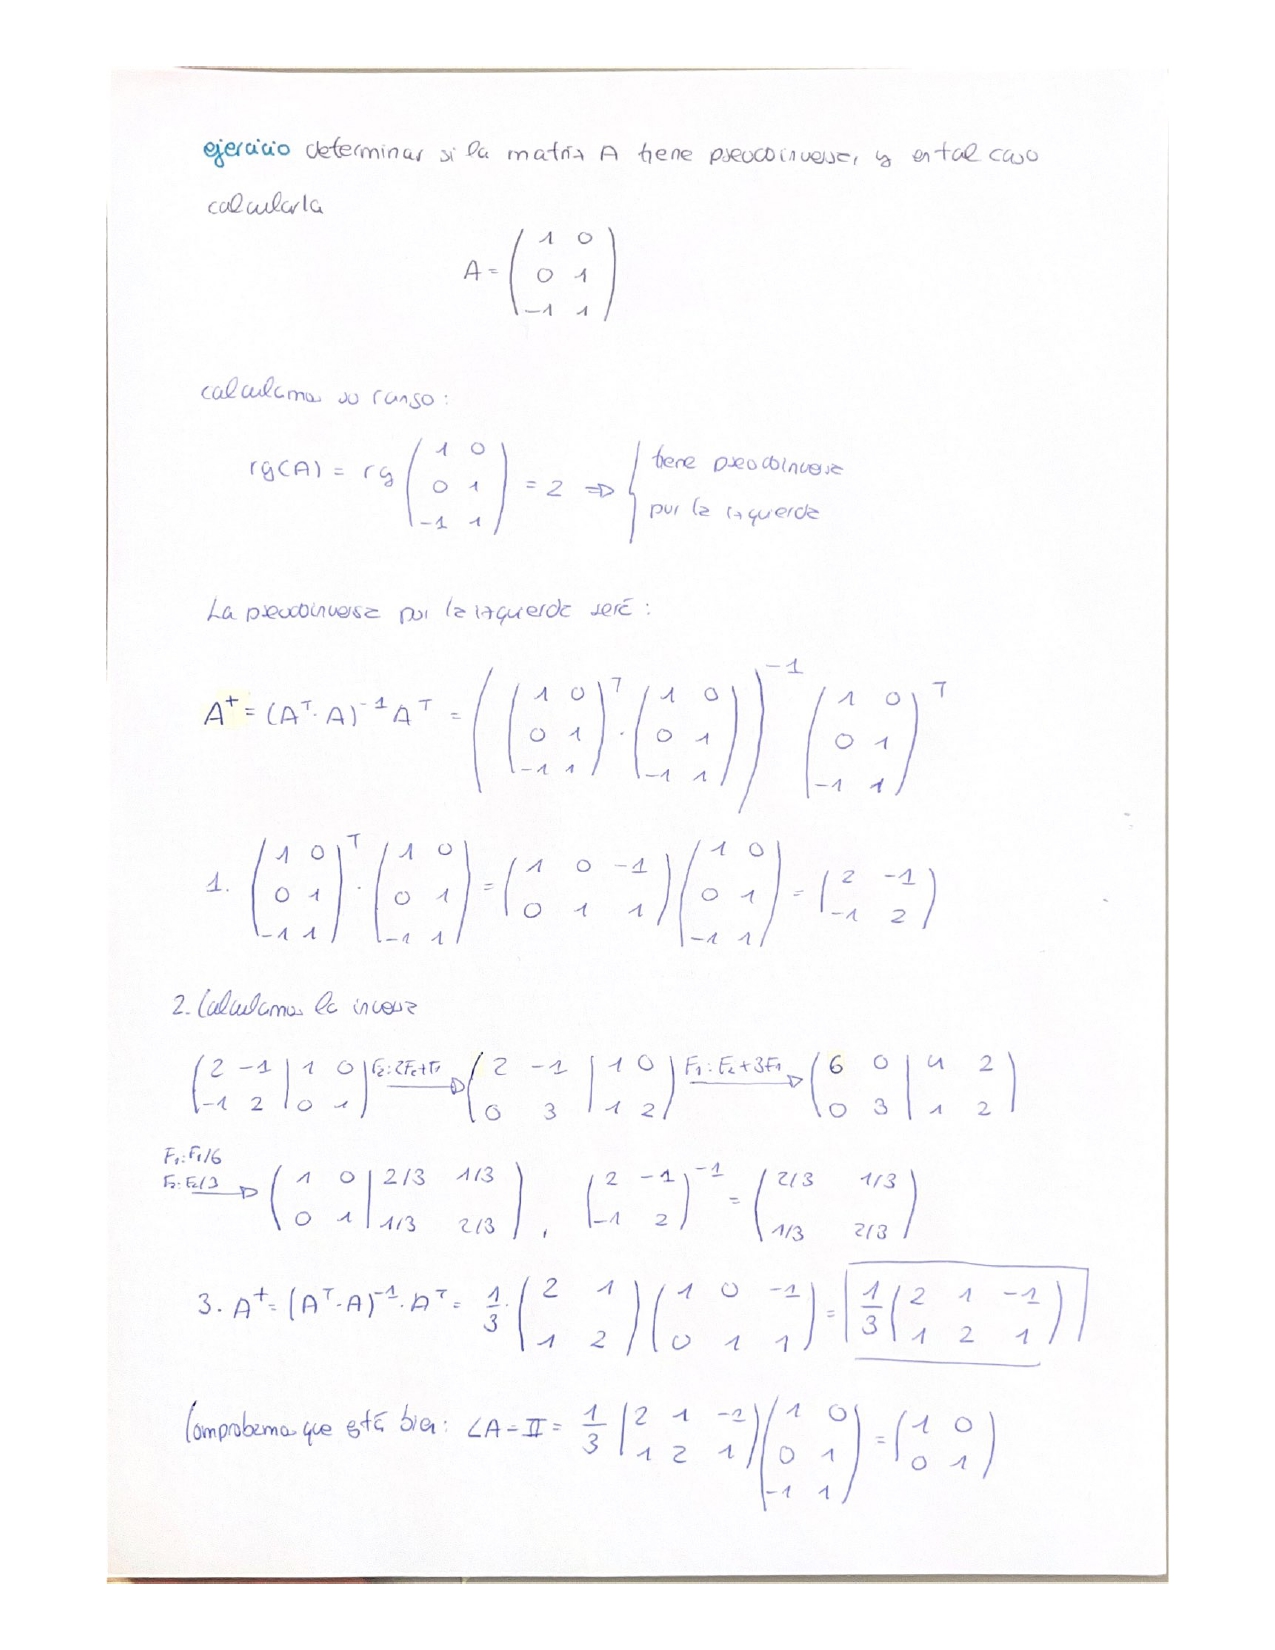 ejercicio determinar si la matriz A tiene pseudoinversa, y en tal caso
calcularla
A = ( 1 0 ; 0 1 ; -1 1 )
calculamos su rango:
rg(A) = rg ( 1 0 ; 0 1 ; -1 1 ) = 2 ⇒ { tiene pseudoinversa
por la izquierda
La pseudoinversa por la izquierda será:
A⁺ = (Aᵀ·A)⁻¹Aᵀ = ( ( 1 0 ; 0 1 ; -1 1 )ᵀ · ( 1 0 ; 0 1 ; -1 1 ) )⁻¹ ( 1 0 ; 0 1 ; -1 1 )ᵀ
1. ( 1 0 ; 0 1 ; -1 1 )ᵀ · ( 1 0 ; 0 1 ; -1 1 ) = ( 1 0 -1 ; 0 1 1 ) ( 1 0 ; 0 1 ; -1 1 ) = ( 2 -1 ; -1 2 )
2. Calculamos la inversa
( 2 -1 | 1 0 ; -1 2 | 0 1 ) F₂: 2F₂+F₁ → ( 2 -1 | 1 0 ; 0 3 | 1 2 ) F₁: F₂+3F₁ → ( 6 0 | 4 2 ; 0 3 | 1 2 )
F₁: F₁/6
F₂: F₂/3 → ( 1 0 | 2/3 1/3 ; 0 1 | 1/3 2/3 ) , ( 2 -1 ; -1 2 )⁻¹ = ( 2/3 1/3 ; 1/3 2/3 )
3. A⁺ = (Aᵀ·A)⁻¹·Aᵀ = 1/3 · ( 2 1 ; 1 2 ) ( 1 0 -1 ; 0 1 1 ) = 1/3 ( 2 1 -1 ; 1 2 1 )
Comprobamos que está bien: LA = II = 1/3 ( 2 1 -1 ; 1 2 1 ) ( 1 0 ; 0 1 ; -1 1 ) = ( 1 0 ; 0 1 )